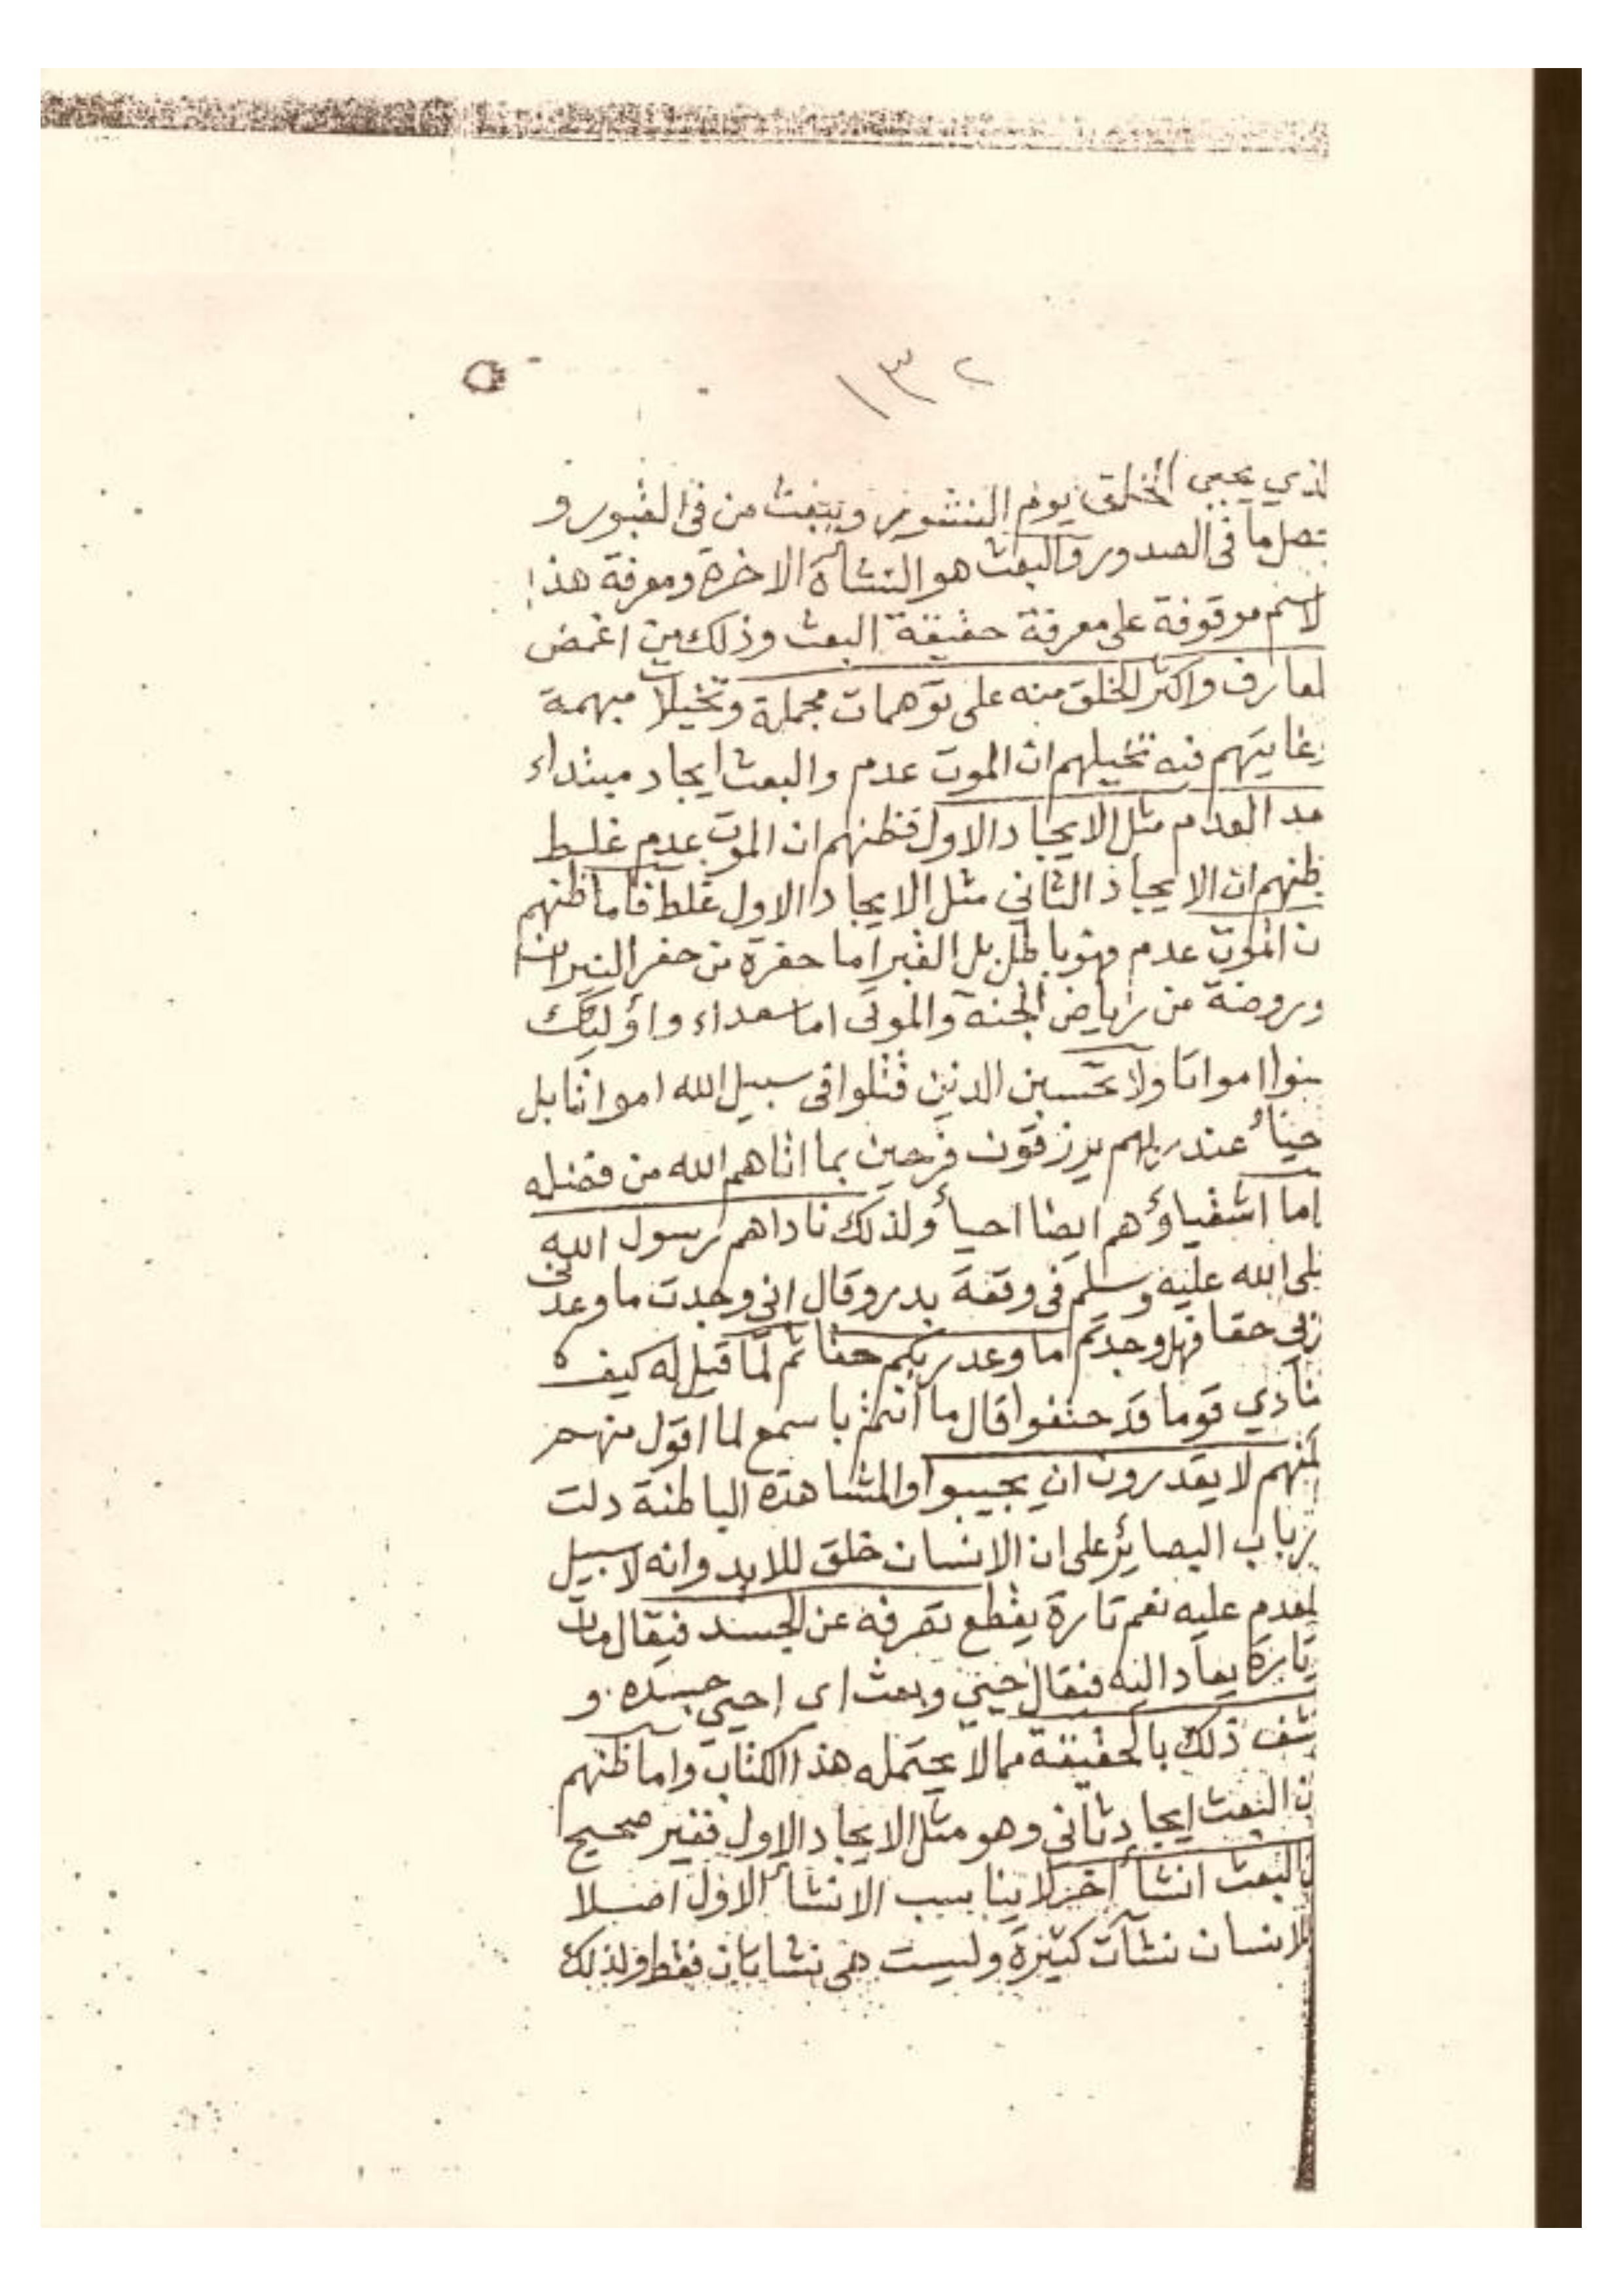 ١٣٢
لذي يحيى الخلق يوم النشور ويبعث من فى القبور و
تصل ما فى الصدور والبعث هو النشأة الاخرة ومعرفة هذا
لاسم موقوفة على معرفة حقيقة البعث وذلك من اغمض
لمعارف واكثر الخلق منه على توهمات مجملة وتخيلات مبهمة
وغايتهم فيه تخيلهم ان الموت عدم والبعث ايجاد مبتداء
مد العدم مثل الايجاد الاول فظنهم ان الموت عدم غلط
ظنهم ان الايجاد الثاني مثل الايجاد الاول غلط فاما ظنهم
ن الموت عدم فهو باطل بل القبر اما حفرة من حفر النيران
وروضة من رياض الجنة والموتى اما سعداء واؤليك
ليسوا امواتا ولا تحسبن الدين قتلوا فى سبيل الله امواتا بل
حيأ عند ربهم يرزقون فرحين بما اتاهم الله من فضله
اما اشقياؤهم ايضا احيأ ولذلك ناداهم رسول الله
لى الله عليه وسلم فى وقعة بدر وقال انى وجدت ما وعدنى
ربى حقا فهل وجدتم ما وعد ربكم حقا ثم لمّا قيل له كيف
تنادي قوما قد جيفوا قال ما انتم باسمع لما اقول منهم
لكنهم لا يقدرون ان يجيبوا والمشاهدة الباطنة دلت
رباب البصائر على ان الانسان خلق للابد وانه لا سبيل
لعدم عليه نعم تارة يقطع تصرفه عن الجسد فيقال مات
تارة يعاد اليه فيقال حيي وبعث اى احيي جسده و
شف ذلك بالحقيقة مما لا يحتمله هذا الكتاب واما ظنهم
ن البعث ايجاد ثانى وهو مثل الايجاد الاول فغير صحيح
البعث انشأ اخر لا يناسب الانشأ الاول اصلا
للانسان نشآت كثيرة وليست هى نشاتان فقط ولذلك